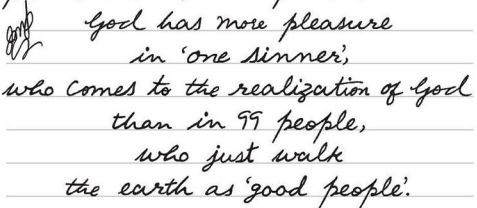 God has more pleasure
in 'one sinner',
who comes to the realization of God
than in 99 people,
who just walk
the earth as 'good people'.